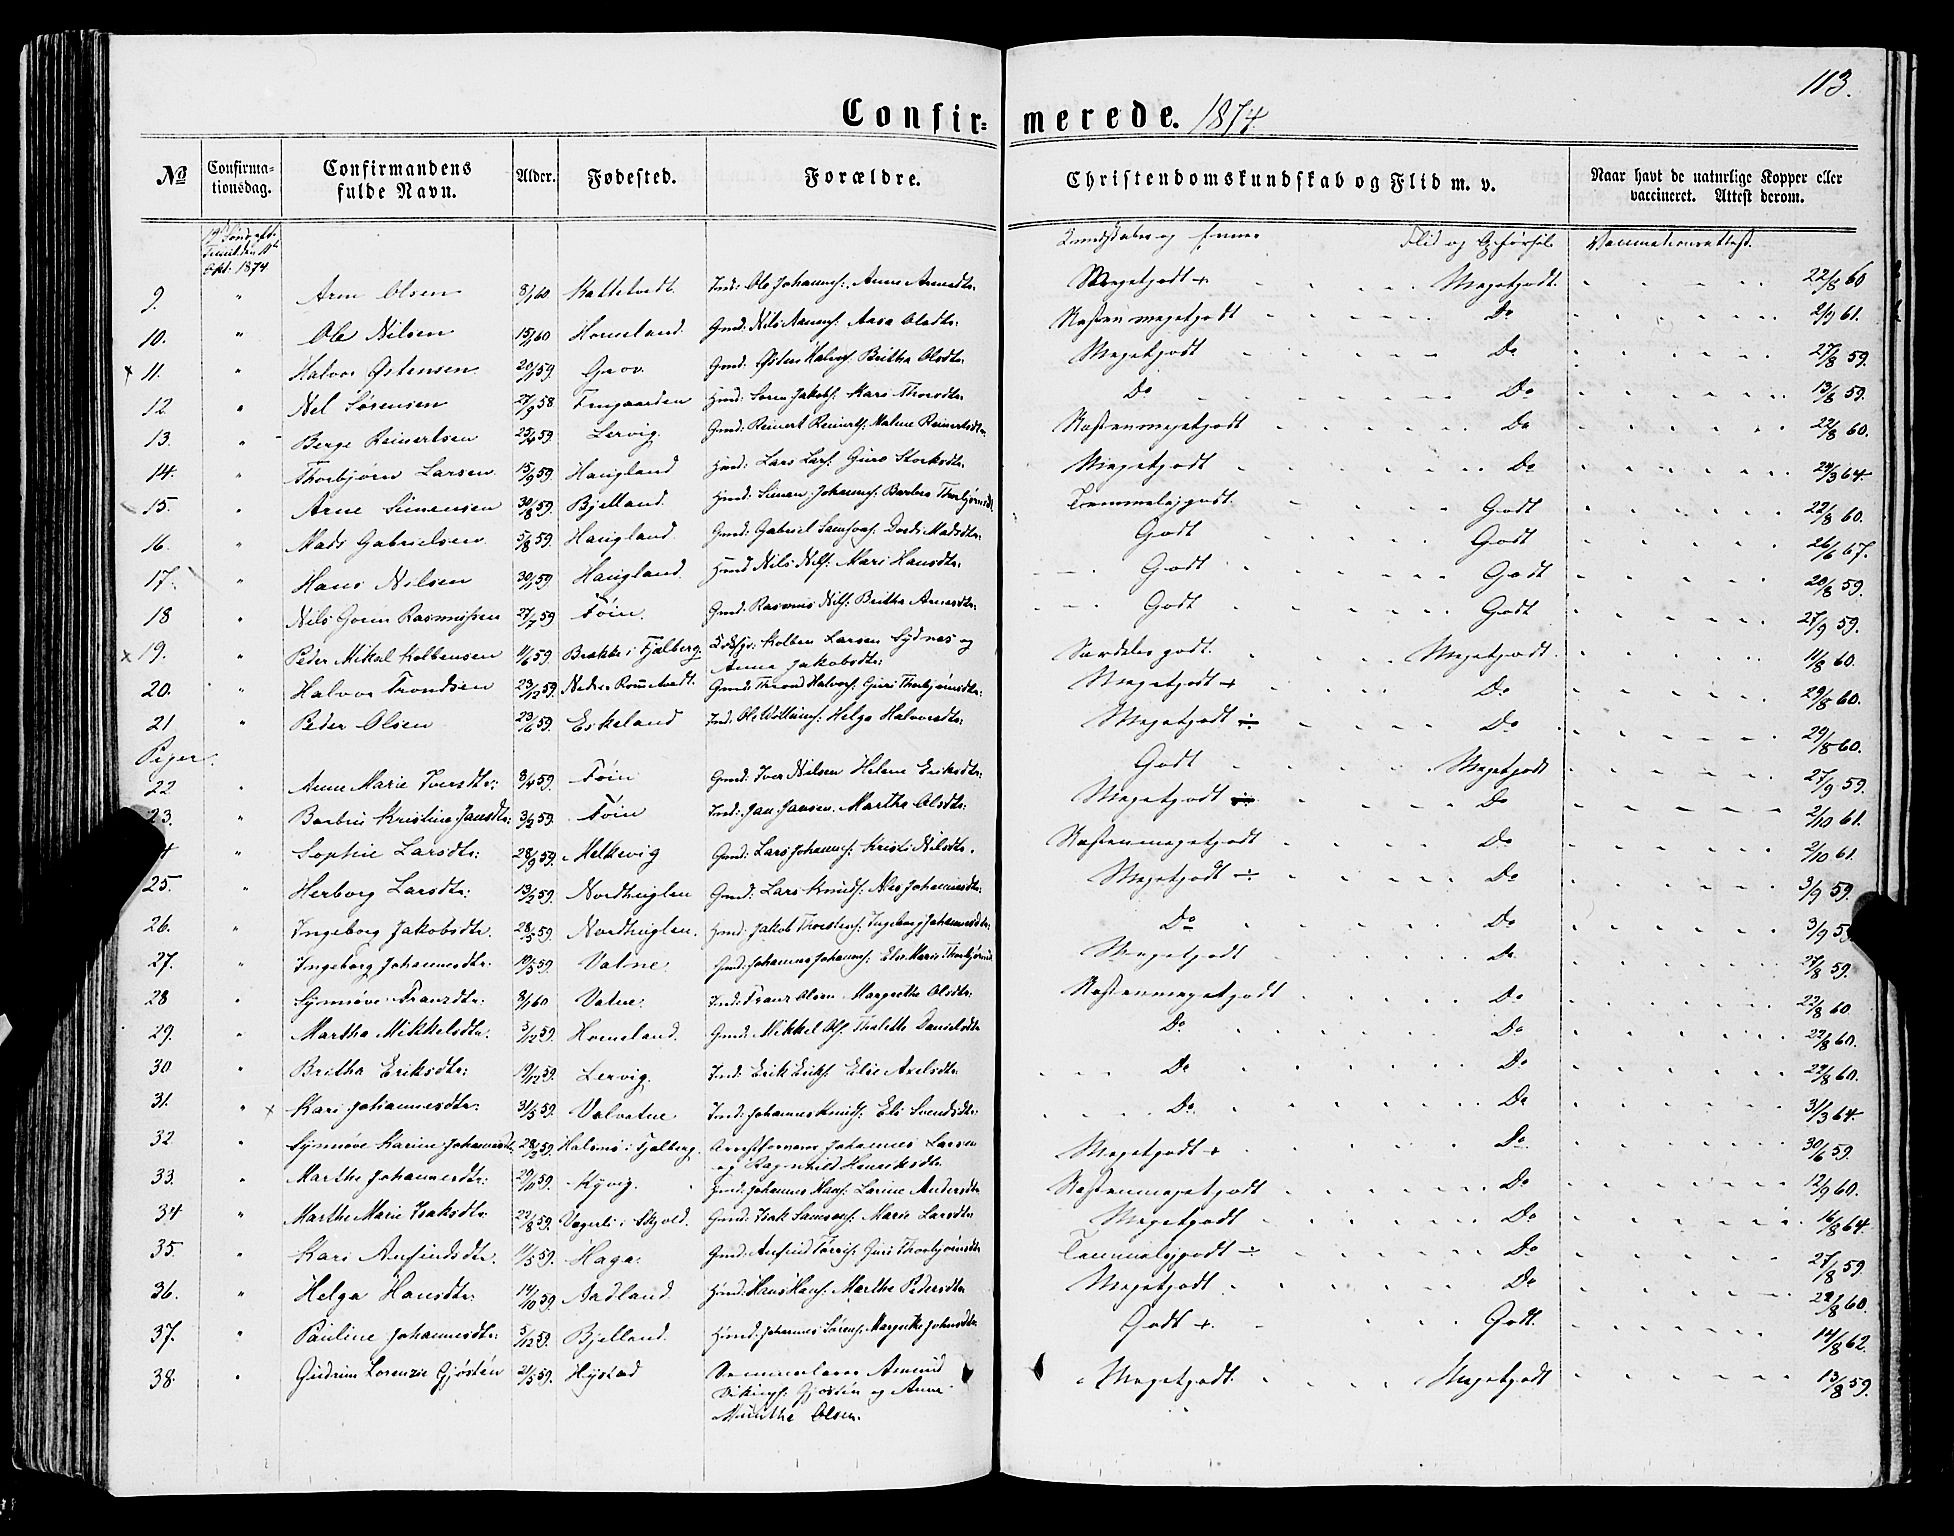 113.
Confir= merede. 1874.
No Confirma-tionsdag. Confirmandens fulde Navn. Alder. Fødested. Forældre. Christendomskundskab og Flid m. v. Naar havt de naturlige Kopper eller vaccineret. Attest derom.
Søndag Trinit. den Okt: 1874 Kundskaber og Evner Flid og Opførsel Vaccinationsattest.
9. " Arne Olsen 8/1 60 Kattetvedt. Ind: Ole Johannes: Anne Arnesdtr: Megetgodt + Megetgodt. 22/8 60
10. " Ole Nilsen 15/1 60 Horneland. Gmd: Nils Aanens: Aasa Olsdtr: Næsten megetgodt Do 2/9 61.
x 11. " Halvor Østensen 20/11 59. Grov. Gmd: Østen Halvors: Britha Olsdtr. Megetgodt Do 27/8 59.
12. " Nel Sørensen 27/9 58 Tengaarden Hmd: Søren Jakobs: Kari Thoresdtr. Do Do 13/8 59.
13. " Berge Reinertsen 25/4 59. Lervig. Gmd: Reinert Reinerts: Malene Reinertsdtr. Næstenmegetgodt Do 22/8 60.
14. " Thorbjørn Larsen 15/9 59 Haugland Hmd: Lars Lars: Guro Storksdtr. Megetgodt Do 29/3 64.
15. " Arne Simensen 30/8 59. Bjelland. Hmd: Simen Johannes: Barbro Thorbjørnsdtr Temmeligodt. Godt 22/8 60.
16. " Mads Gabrielsen 5/8 59. Haugland. Gmd: Gabriel Samsons: Dordi Madsdtr: Godt Godt 26/6 67.
17. " Hans Nilsen 30/1 59 Haugland. Hmd Nils Nils: Mari Hansdtr: Godt Godt 20/8 59.
18 " Nils Goren Rasmussen 27/7 59 Føin. Gmd: Rasmus Nils: Britha Arnesdtr: Godt Godt 27/9 59.
x 19. " Peder Mikal Kolbensen 11/6 59 Brekke i Fjelberg. Kolben Larsen Sydnes og Særdeles godt. Megetgodt. 11/8 60.
Anna Jakobsdtr:
20. " Halvor Trondsen 23/12 59. Nedre Rommetvedt. Gmd: Thrond Halvors: Guri Thorbjørnsdtr: Megetgodt + Do 29/8 60.
21 " Peder Olsen 23/6 59. Eskeland Ind: Ole Helga Halvorsdtr: Megetgodt ÷ Do 29/8 60.
Piger.
22 " Anne Marie Iversdtr: 8/4 59 Føin Gmd: Iver Nilsen Helene Eriksdtr: Godt Megetgodt 27/9 59.
23. " Barbru Kristine Jansdtr: 3/2 59. Føin Ind: Jan Jansen. Martha Olsdtr: Megetgodt Do 2/10 61.
4 " Sophie Larsdtr: 28/9 59. Melkevig Gmd: Lars Johannes: Kristi Nilsdtr. Næstenmegetgodt Do 2/10 61.
25. " Herborg Larsdtr: 13/2 59. Nordhuglen Gmd: Lars Knuds: Ales Johannesdtr: Megetgodt ÷ Do 3/9 59.
26. " Ingeborg Jakobsdtr. 28/5 59. Nordhuglen. Hmd: Jakob Thorstens: Ingeborg Johannesdtr: Do Do 3/9 59
27. " Ingeborg Johannesdtr. 19/5 59. Vatne. Gmd: Johannes Johannes: Else Marie Thorbjørnsd. Megetgodt Do 27/8 59.
28 " Synnøve Fransdtr: 8/1 60 Vatne. Ind: Frans Olsen Margrethe Olsdtr: Næstenmegetgodt Do 22/8 60
29. " Martha Mikkelsdtr: 3/12 59. Horneland. Gmd: Mikkel Ols: Thalette Danielsdtr Do Do 22/8 60.
30 " Britha Eriksdtr: 19/12 59. Lervig. Ind: Erik Eriks: Elsie Axelsdtr Do Do 29/8 60.
31. " x Kari Johannesdtr: 31/5 59. Valvatne Ind: Johannes Knuds: Eli Svendsdtr: Do Do 31/3 64.
32 " Synnøve Karine Johannesdtr 28/3 59. Halsnø i Fjelberg. Johannes Larsen Megetgodt + Do 30/6 59.
og Ragnhild Henriksdtr
33. " Marthe Johannesdtr: 29/11 59. Kyvig. Hmd: Johannes Hans: Larine Andersdtr Næstenmegetgodt Do 12/9 60.
34 " Marthe Marie Isaksdtr. 22/8 59. Vågerli i Skjold. Gmd: Isak Samsons: Marie Larsdtr Megetgodt Do 16/8 64.
35. " Kari Anfindsdtr. 11/5 59. Haga. Gmd: Anfind Torris: Guri Thorbjørnsdtr Temmeligodt ÷ Do 27/8 59
36. " Helga Hansdtr: 14/10 59. Aadland. Hmd: Hans Hans: Marthe Pedersdtr Megetgodt Do 29/8 60.
37. " Pauline Johannesdtr: 5/12 59. Bjelland. Hmd: Johannes Sørens: Margrethe Johnsdtr. Godt +. Godt. 14/8 62.
38. " Gudrun Lorenzie Gjøstén 21/5 59. Hystad Amund Megetgodt. Megetgodt 13/8 59.
Gjøstén og Anne
Munthe Olsen.